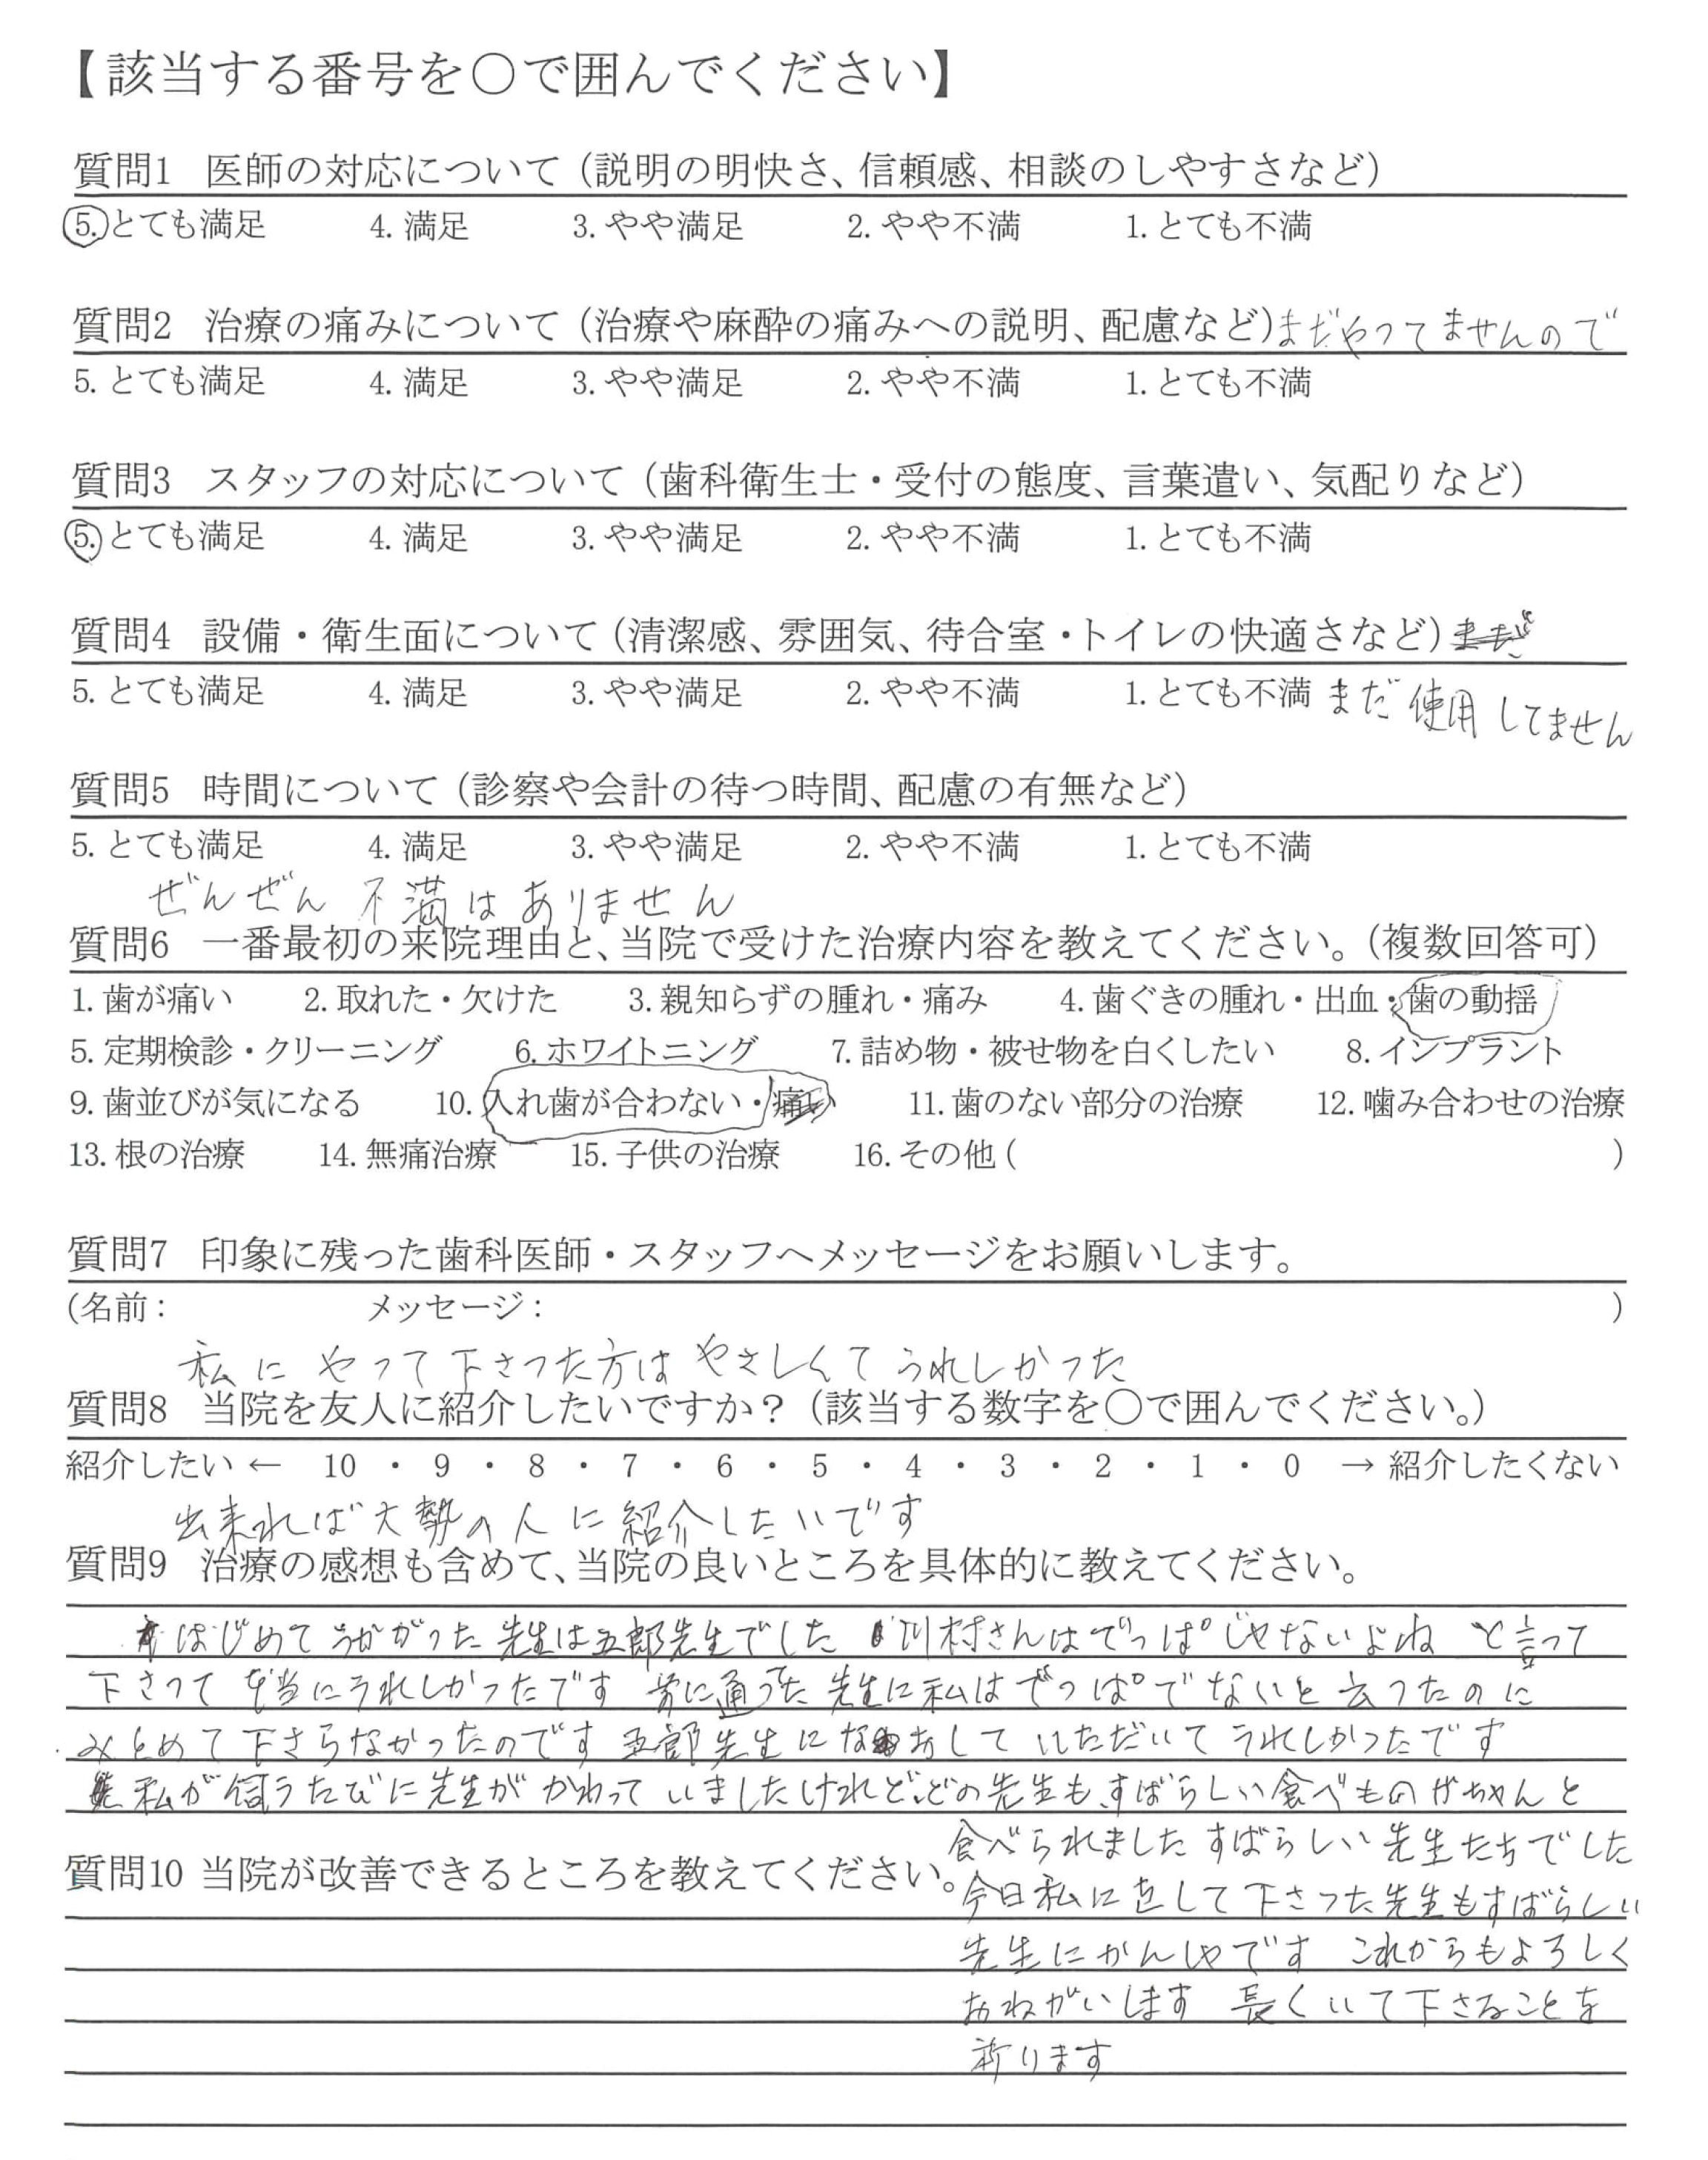 【該当する番号を〇で囲んでください】
質問1 医師の対応について（説明の明快さ、信頼感、相談のしやすさなど）
5. とても満足 4. 満足 3. やや満足 2. やや不満 1. とても不満
質問2 治療の痛みについて（治療や麻酔の痛みへの説明、配慮など）まだやってませんので
5. とても満足 4. 満足 3. やや満足 2. やや不満 1. とても不満
質問3 スタッフの対応について（歯科衛生士・受付の態度、言葉遣い、気配りなど）
5. とても満足 4. 満足 3. やや満足 2. やや不満 1. とても不満
質問4 設備・衛生面について（清潔感、雰囲気、待合室・トイレの快適さなど）
5. とても満足 4. 満足 3. やや満足 2. やや不満 1. とても不満 まだ使用してません
質問5 時間について（診察や会計の待つ時間、配慮の有無など）
5. とても満足 4. 満足 3. やや満足 2. やや不満 1. とても不満
ぜんぜん不満はありません
質問6 一番最初の来院理由と、当院で受けた治療内容を教えてください。（複数回答可）
1. 歯が痛い 2. 取れた・欠けた 3. 親知らずの腫れ・痛み 4. 歯ぐきの腫れ・出血・歯の動揺
5. 定期検診・クリーニング 6. ホワイトニング 7. 詰め物・被せ物を白くしたい 8. インプラント
9. 歯並びが気になる 10. 入れ歯が合わない・痛い 11. 歯のない部分の治療 12. 噛み合わせの治療
13. 根の治療 14. 無痛治療 15. 子供の治療 16. その他（ ）
質問7 印象に残った歯科医師・スタッフへメッセージをお願いします。
（名前： メッセージ： ）
私にやって下さった方はやさしくてうれしかった
質問8 当院を友人に紹介したいですか？（該当する数字を〇で囲んでください。）
紹介したい ← 10 ・ 9 ・ 8 ・ 7 ・ 6 ・ 5 ・ 4 ・ 3 ・ 2 ・ 1 ・ 0 → 紹介したくない
出来れば大勢の人に紹介したいです
質問9 治療の感想も含めて、当院の良いところを具体的に教えてください。
はじめてうかがった先生は五郎先生でした 川村さんはでっぱじゃないよね と言って
下さって 本当にうれしかったです に通った先生に私はでっぱでないと云ったのに
みとめて下さらなかったのです 五郎先生になおしていただいてうれしかったです
私が伺うたびに先生がかわっていましたけれど、どの先生もすばらしい食べものがちゃんと
食べられました すばらしい先生たちでした
質問10 当院が改善できるところを教えてください。
今日私に直して下さった先生もすばらしい
先生にかんしゃです これからもよろしく
おねがいします 長くいて下さることを
祈ります